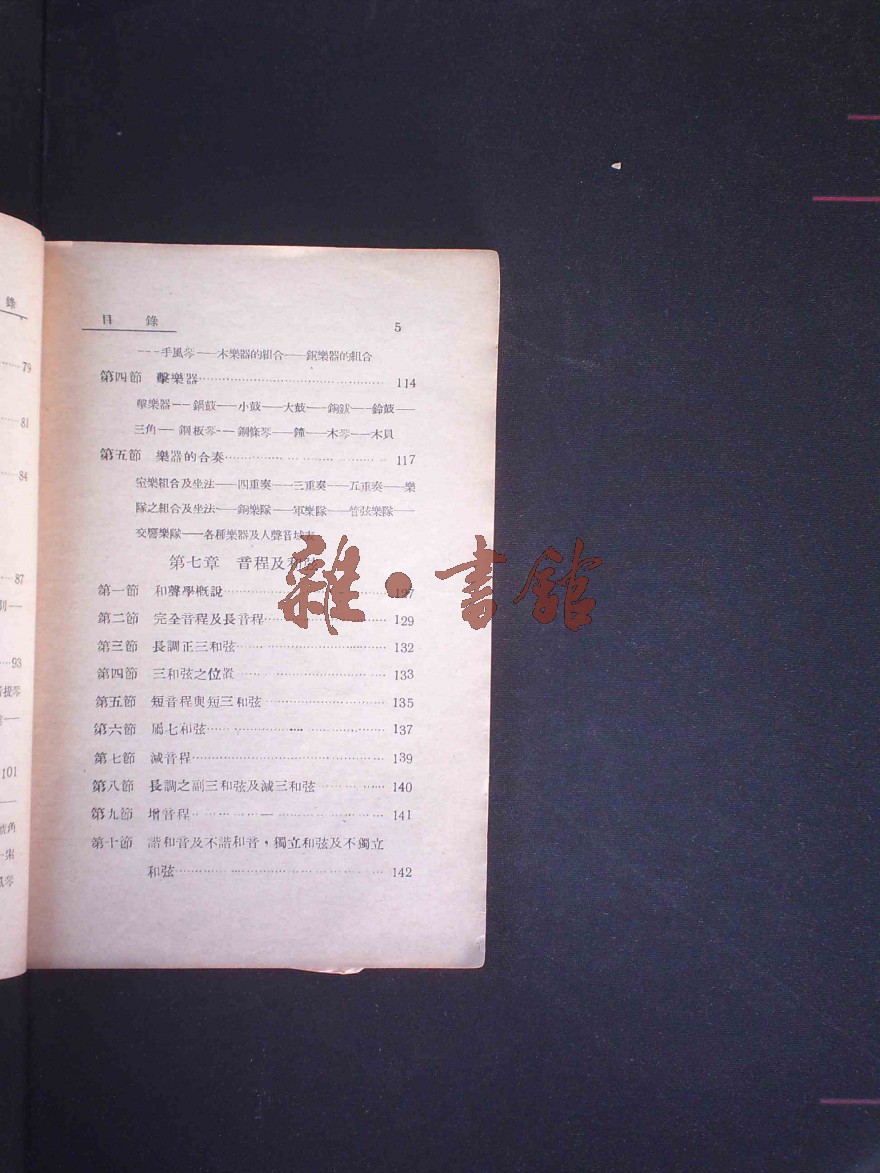 錄
79
81
84
87
93
101
目 錄 5
---手風琴——木樂器的組合——銅樂器的組合
第四節 擊樂器 114
擊樂器——鍋鼓——小鼓——大鼓——銅鈸——鈴鼓——
三角——鋼板琴——鋼條琴——鐘——木琴——木貝
第五節 樂器的合奏 117
室樂組合及坐法——四重奏——三重奏——五重奏——樂
隊之組合及坐法——銅樂隊——軍樂隊——管弦樂隊——
交響樂隊——各種樂器及人聲音域表
第七章 音程及和弦
第一節 和聲學概說 127
第二節 完全音程及長音程 129
第三節 長調正三和弦 132
第四節 三和弦之位置 133
第五節 短音程與短三和弦 135
第六節 屬七和弦 137
第七節 減音程 139
第八節 長調之副三和弦及減三和弦 140
第九節 增音程 141
第十節 諧和音及不諧和音，獨立和弦及不獨立
和弦 142
雜·書館